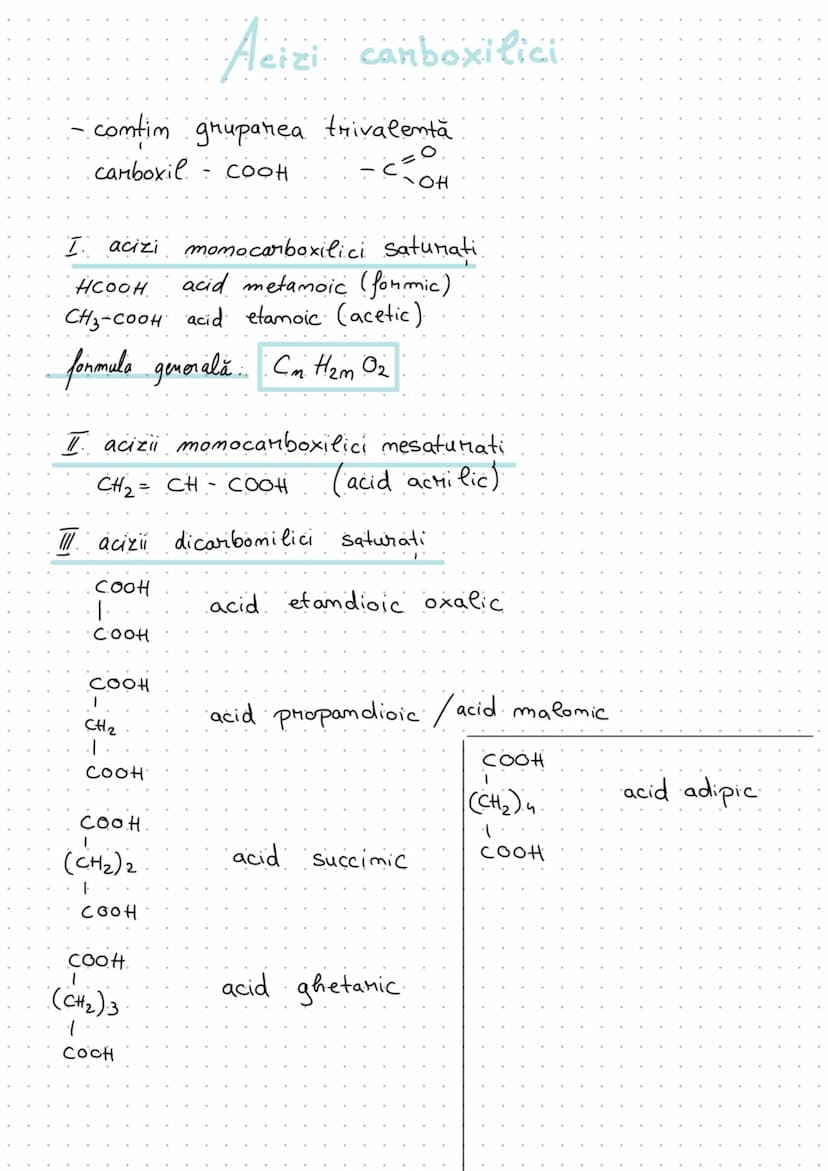 Acizi carboxilici
- conțin gruparea trivalentă
carboxil - COOH -C=O
OH
I. acizi monocarboxilici saturați
HCOOH acid metanoic (formic)
CH3-COOH acid etanoic (acetic)
formula generală: CnH2nO2
II. acizii monocarboxilici nesaturați
CH2 = CH - COOH (acid acrilic)
III. acizii dicarbonilici saturați
COOH
|
COOH
acid etandioic oxalic
COOH
|
CH2
|
COOH
acid propandioic / acid malonic
COOH
|
(CH2)2
|
COOH
acid succinic
COOH
|
(CH2)3
|
COOH
acid ghetaric
COOH
|
(CH2)4
|
COOH
acid adipic